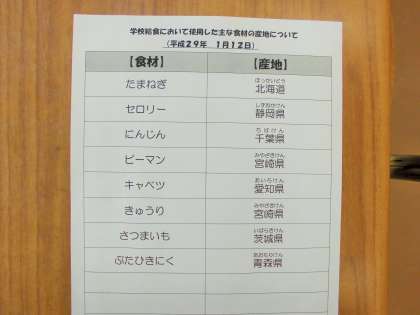 学校給食において使用した主な食材の産地について
（平成２９年　１月１２日）
【食材】 【産地】
たまねぎ 北海道
ほっかいどう
セロリー 静岡県
しずおかけん
にんじん 千葉県
ちばけん
ピーマン 宮崎県
みやざきけん
キャベツ 愛知県
あいちけん
きゅうり 宮崎県
みやざきけん
さつまいも 茨城県
いばらきけん
ぶたひきにく 青森県
あおもりけん